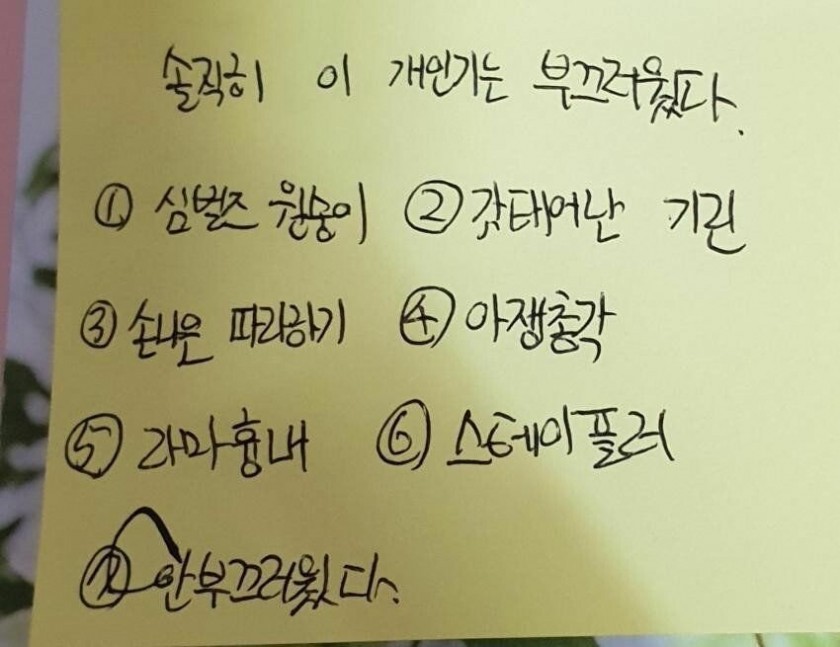 솔직히 이 개인기는 부끄러웠다.
① 심벌즈 원숭이 ② 갓태어난 기린
③ 손나은 따라하기 ④ 아쟁총각
⑤ 라마흉내 ⑥ 스테이플러
⑦ 안부끄러웠다.